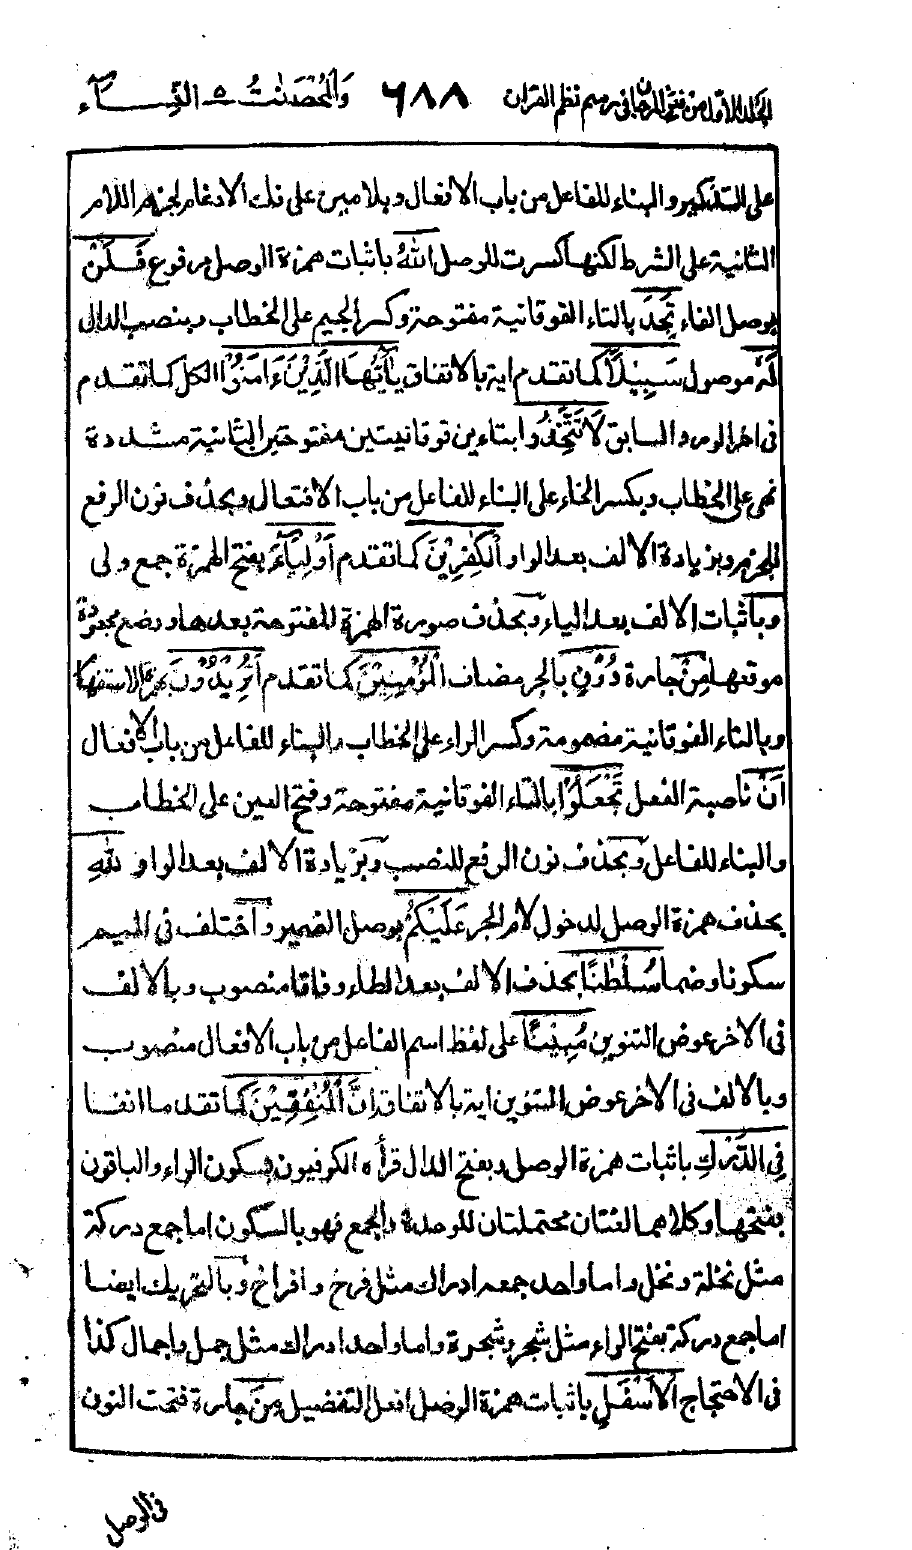 المجلد الاول من نثر المرجان فی رسم نظم القران ٦٨٨ وَالْمُحْصَنٰتُ ٥ النِّسَآء
علی التذکیر والبناء للفاعل من باب الافعال وبلامین علی فك الادغام لجزم اللام
الثانیة علی الشرط لکنها کسرت للوصل اللهُ باثبات همزة الوصل مرفوع فَلَنْ
بوصل الفاء تَجِدَ بالتاء الفوقانیة مفتوحة وکسر الجیم علی الخطاب وبنصب الدال
لَهٗ موصول سَبِیْلًا کما تقدم ایة بالاتفاق یٰٓاَیُّهَا الَّذِیْنَ ءَامَنُوْا الکل کما تقدم
فی اهل الورد السابق لَا تَتَّخِذُوا بتاءین فوقانیتین مفتوحتین الثانیة مشددة
نهی علی الخطاب وبکسر الخاء علی البناء للفاعل من باب الافتعال وبحذف نون الرفع
للجزم وبزیادة الالف بعد الواو الْکٰفِرِیْنَ کما تقدم اَوْلِیَآءَ بفتح الهمزة جمع ولی
وباثبات الالف بعد الیاء وبحذف صورة الهمزة المفتوحة بعدها ووضع مجعودة
موقعها مِنْ جارة دُوْنِ بالجر مضاف الْمُؤْمِنِیْنَ کما تقدم اَتُرِیْدُوْنَ بهمزة الاستفهام
وبالتاء الفوقانیة مضمومة وکسر الراء علی الخطاب والبناء للفاعل من باب الافعال
اَنْ ناصبة الفعل تَجْعَلُوْا بالتاء الفوقانیة مفتوحة وفتح العین علی الخطاب
والبناء للفاعل وبحذف نون الرفع للنصب وبزیادة الالف بعد الواو لِلّٰهِ
بحذف همزة الوصل لدخول لام الجر عَلَیْکُمْ بوصل الضمیر واختلف فی المیم
سکونا وضما سُلْطٰنًا بحذف الالف بعد الطاء وفاقا منصوب وبالالف
فی الاخر عوض التنوین مُّبِیْنًا علی لفظ اسم الفاعل من باب الافعال منصوب
وبالالف فی الاخر عوض التنوین ایة بالاتفاق اِنَّ الْمُنٰفِقِیْنَ کما تقدما انفا
فِی الدَّرْكِ باثبات همزة الوصل وبفتح الدال قرأه الکوفیون بسکون الراء والباقون
بفتحها وکلاهما لغتان محتملتان للوحدة والجمع فهو بالسکون اما جمع درکة
مثل نخلة ونخل واما واحد جمعه ادراك مثل فرخ وافراخ وبالتحریك ایضا
اما جمع درکة بفتح الراء مثل شجر وشجرة واما واحد ادراك مثل جمل واجمال کذا
فی الاحتجاج الْاَسْفَلِ باثبات همزة الوصل افعل التفضیل مِنَ جارة فتحت النون
فی الوصل